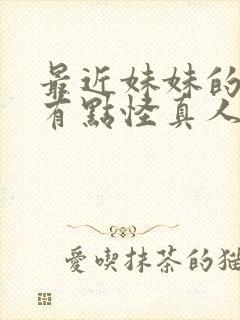 最近妹妹的
有點怪真人
愛喫抹茶的猫